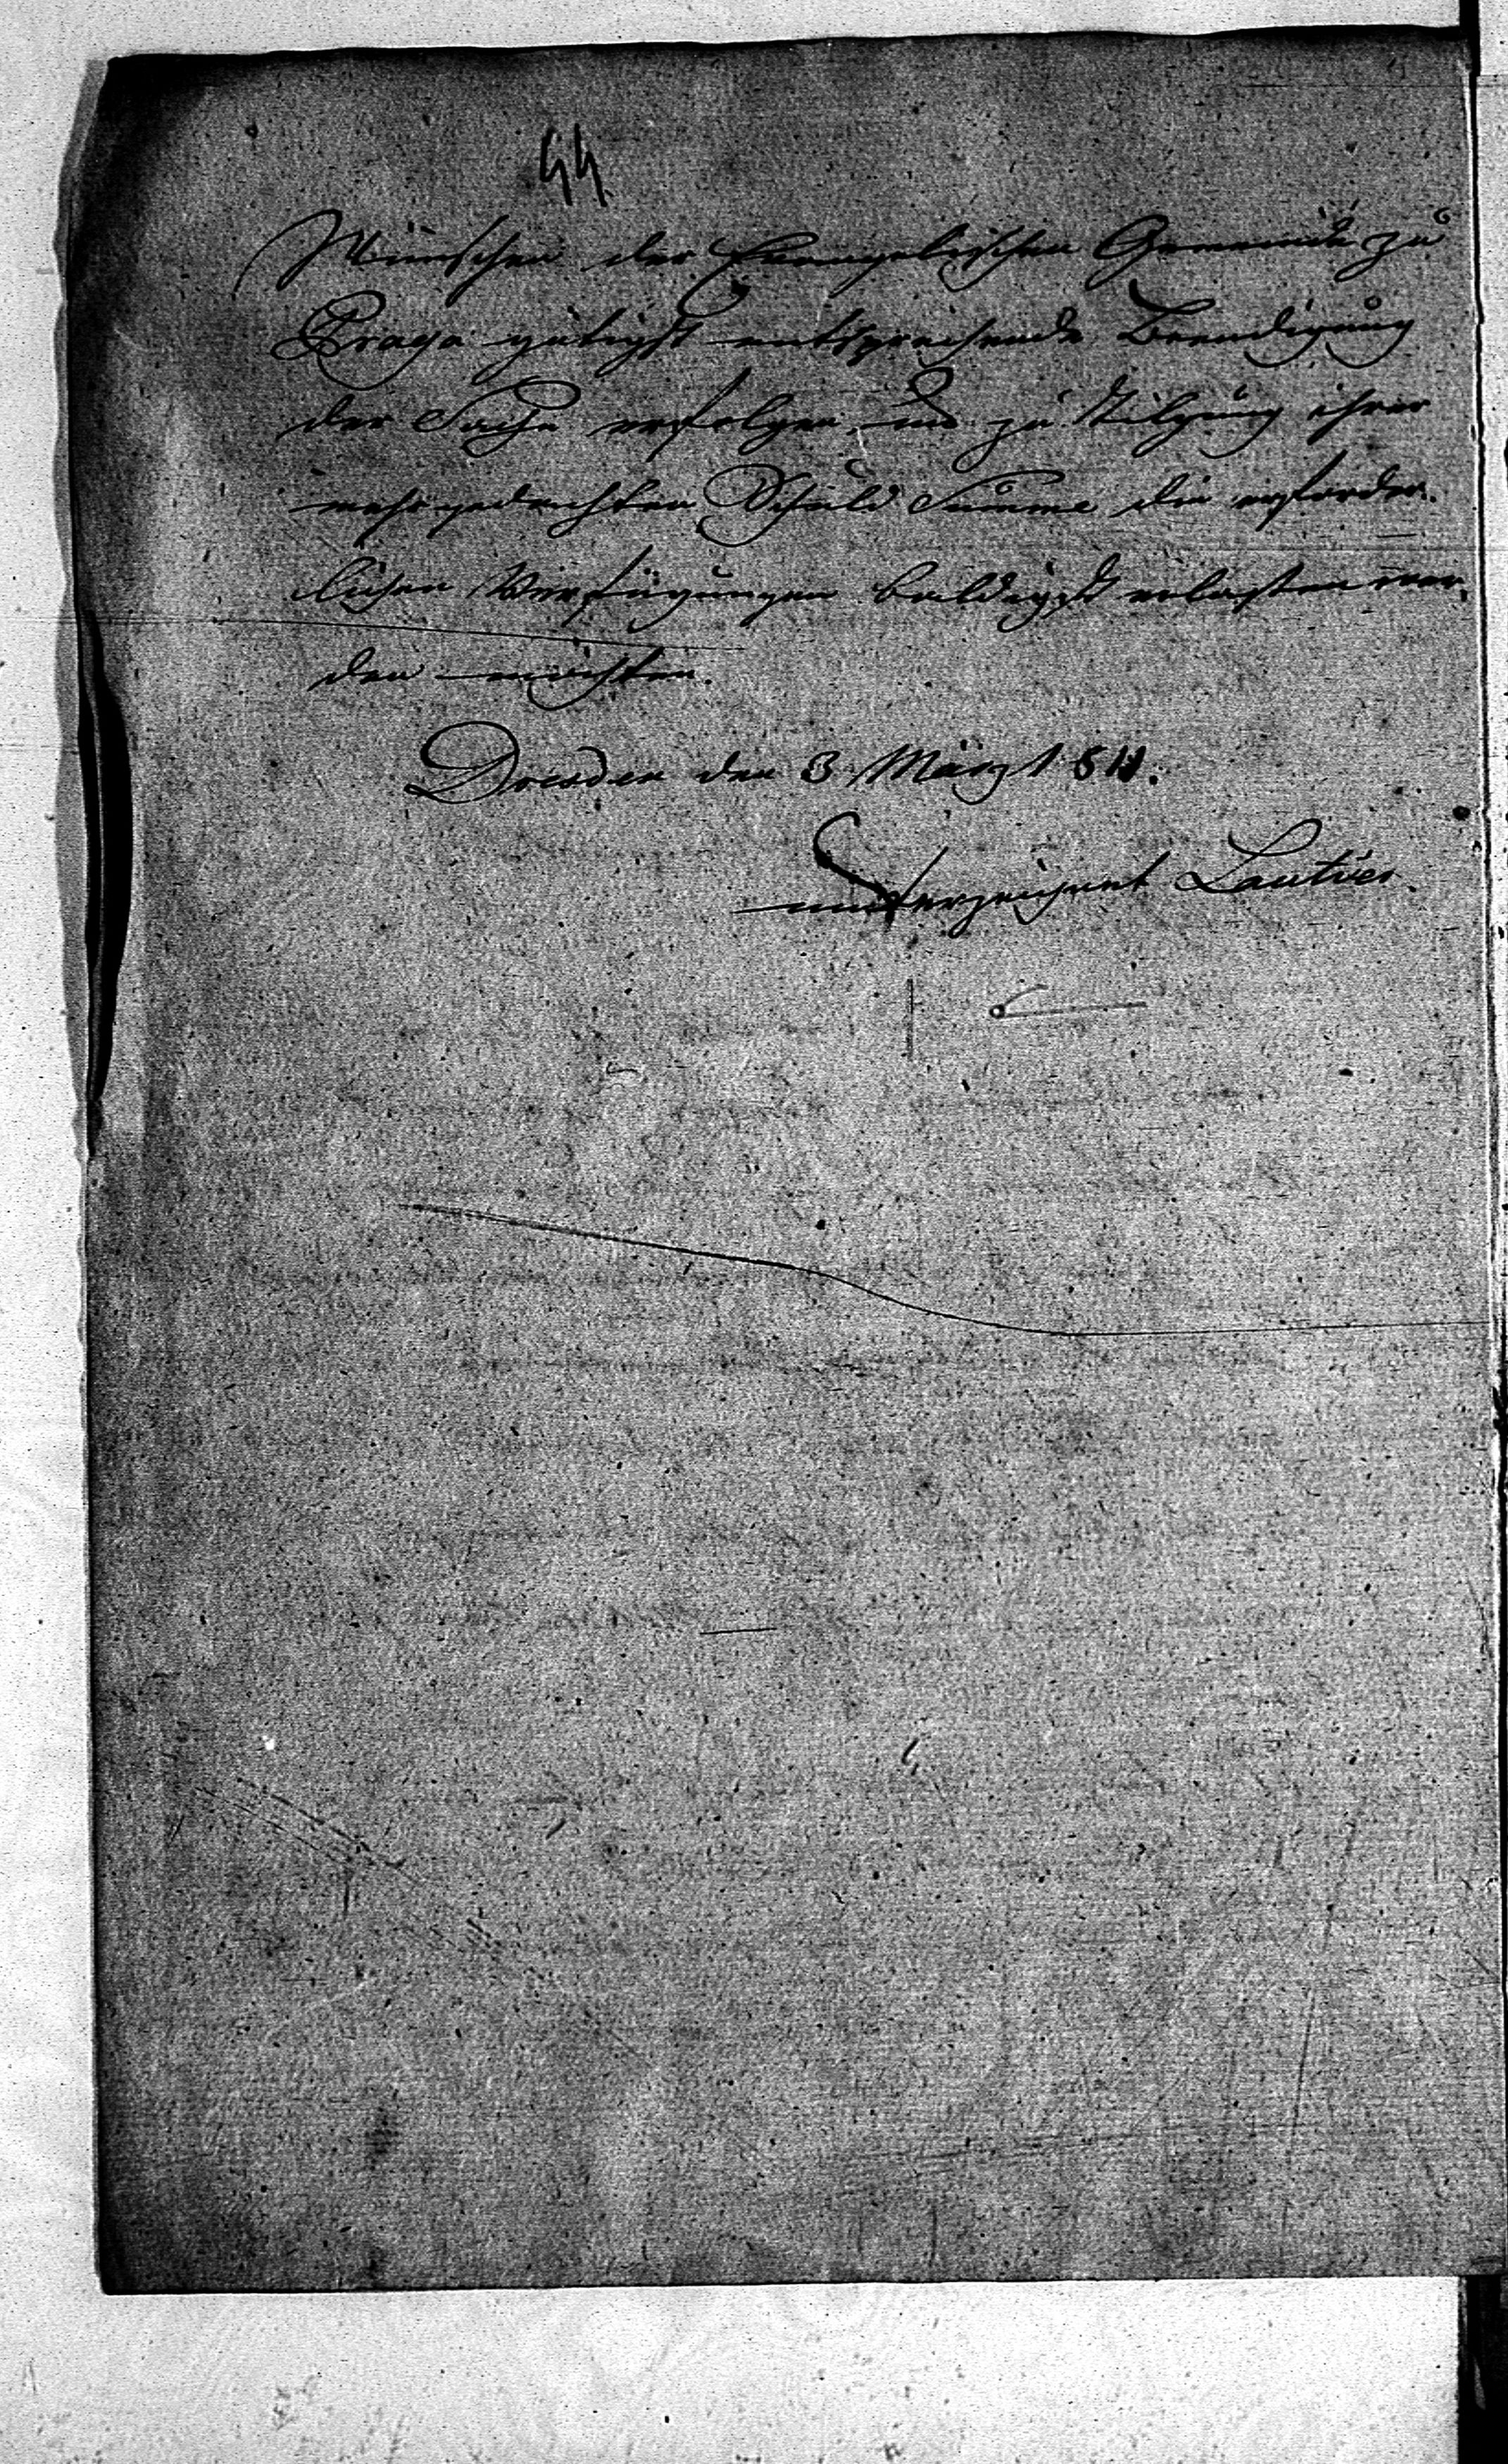 44
Wünschen der Evangelischen Gemeinde zu
Praga gütigst entsprechende Beendigung
der Sache erfolgen, und zu Tilgung ihrer
mehr gedachten Schuld Summe die erforder-
lichen Verfügungen baldigst erlassen wer-
den möchten.
Dresden den 3 März 1811.
unterzeichnet Lautier.